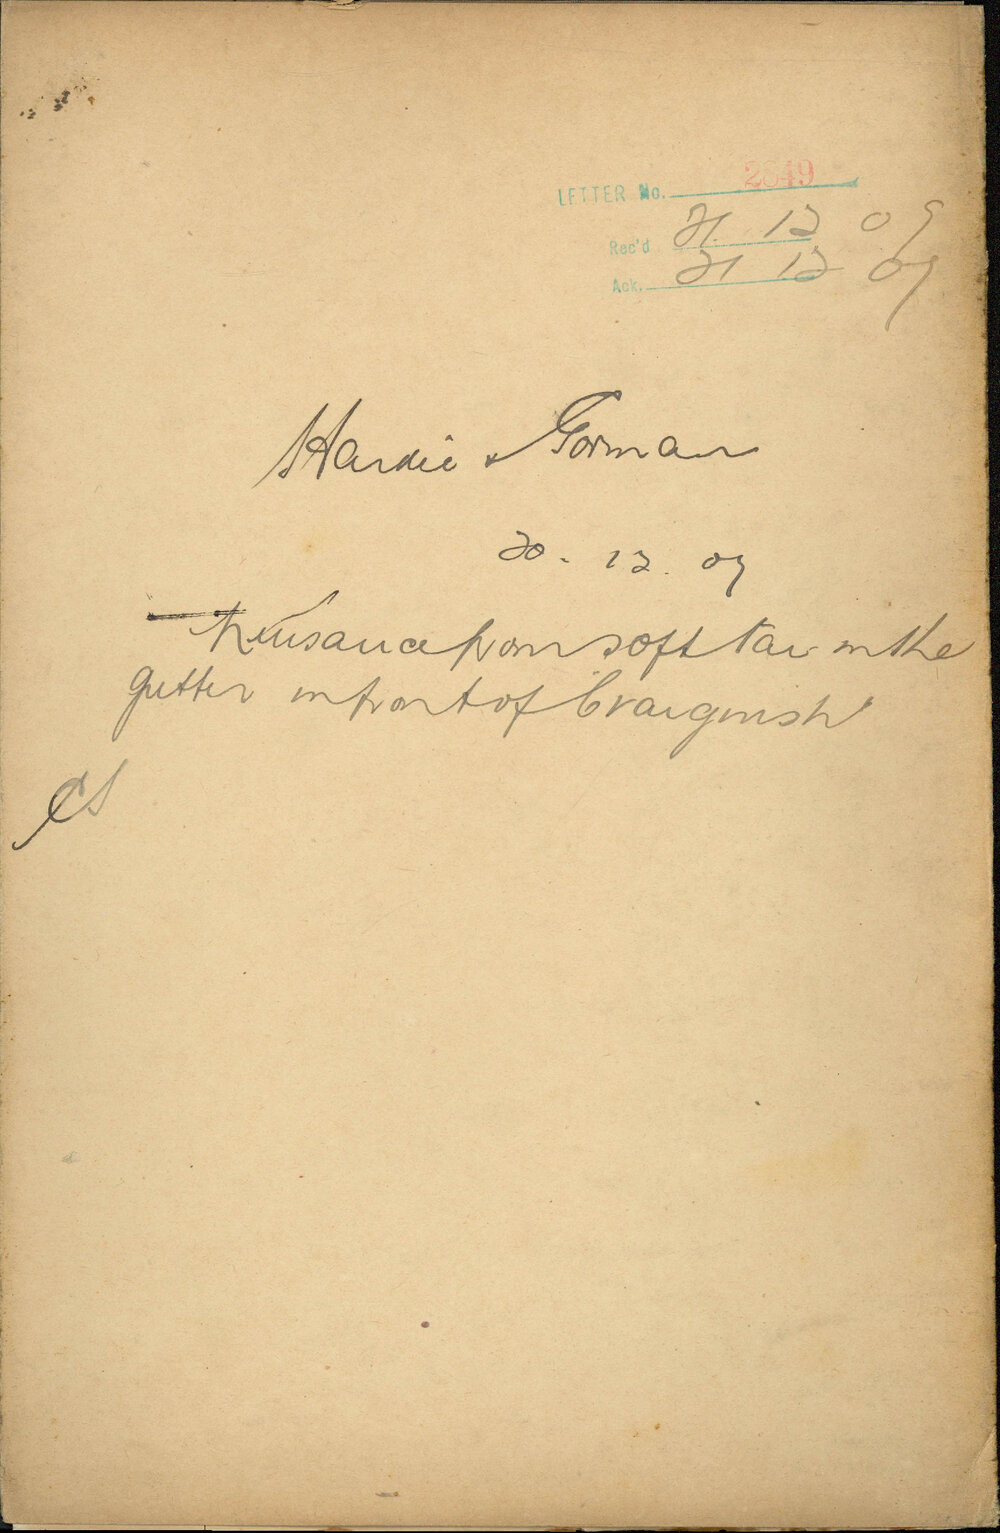 LETTER No. 2649
Rec'd 21. 12 09
Ack. 21 12 09
Hardie & Gorman
20. 12. 09
Nuisance from soft tar in the
gutter in front of Craiguish
CS